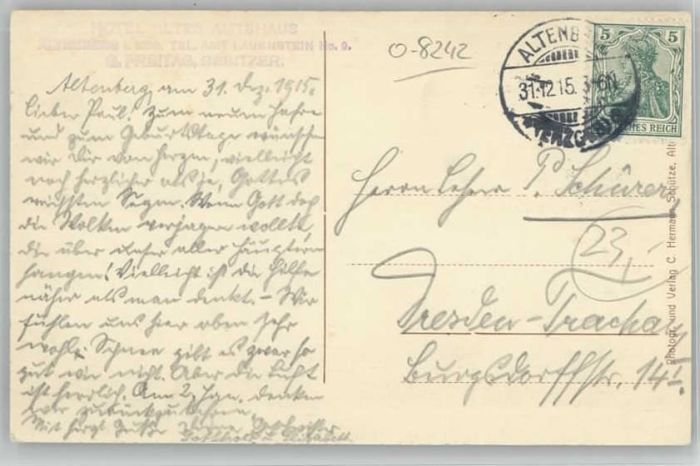 HOTEL ALTES AMTSHAUS
ALTENBERG i. ERZG. TEL. AMT LAUENSTEIN No. 9.
G. FREITAG, BESITZER.
Altenberg am 31. Dez. 1915.
Lieber Paul! Zum neuen Jahre
und zum Geburtstage wünschen
wir Dir von Herzen, vielleicht
noch herzlicher als je, Gottes
reichsten Segen. Wenn Gott doch
die Wolken verjagen wollte,
die über unser aller Häuptern
hangen! Vielleicht ist die Hilfe
näher als man denkt. Wir
fühlen uns hier oben sehr
wohl. Schnee gibt es zwar so
gut wie nicht. Aber die Luft
ist herrlich. Am 2. Jan. denken
wir zurückzukehren.
Mit herzl. Grüße
Gotthold u. Elisabeth.
O-8242
ALTENB
31.12.15. 3-6N
(ERZGEB.)
5 5
DEUTSCHES REICH
Herrn Lehrer P. Schürer
23,-
Dresden-Trachau
Burgsdorffstr. 14 I.
Photogr. und Verlag C. Hermann Schütze, Alt